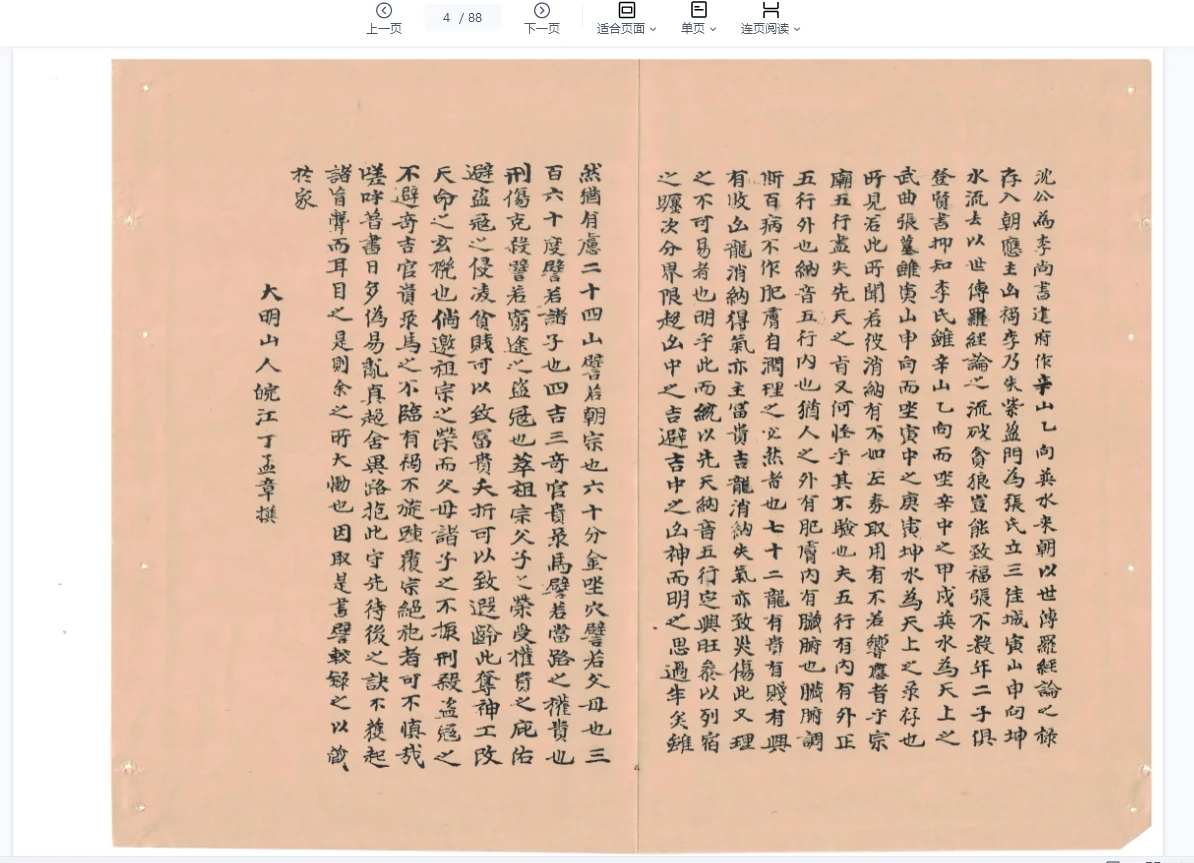 上一页
4 / 88
下一页
适合页面
单页
连页阅读
沈公為李尚書遣府作辛山乙向巽水来朝以世傳羅經論之祿
存入朝應主凶禍李乃朱紫盈門為張氏立三佳城寅山申向坤
水流去以世傳羅經論之流破貪狼豈能致福張不數年二子俱
登賢書抑知李氏雖辛山乙向而坐辛中之甲戌巽水為天上之
武曲張墓雖寅山申向而坐寅中之庚寅坤水為天上之录存也
所見若此所聞若彼消納有不如左券取用有不若響應者乎宗
廟五行盡失先天之肯又何怪乎其不驗也夫五行有內有外正
五行外也納音五行內也猶人之外有肥膚內有臟腑也臟腑調
斯百病不作肥膚自潤理之必然者也七十二龍有貴有賤有興
有敗凶龍消納得氣亦主富貴吉龍消納失氣亦致災傷此又理
之不可易者也明乎此而統以先天納音五行定興旺叅以列宿
之躔次分界限趨凶中之吉避吉中之凶神而明之思過半矣雖
然猶有慮二十四山譬若朝宗也六十分金坐穴譬若父母也三
百六十度譬若諸子也四吉三奇官貴录馬譬若當路之權貴也
刑傷克殺譬若窮途之盜寇也萃祖宗父子之榮受權貴之庇佑
避盜寇之侵凌貧賤可以致富貴夭折可以致遐齡此奪神工改
天命之玄機也倘邀祖宗之榮而父母諸子之不振刑殺盜寇之
不避奇吉官貴录馬之不臨有禍不旋踵覆宗絕祀者可不慎哉
嗟呼普書日多偽易亂真趨舍異路抱此守先待後之訣不獲起
諸盲聾而耳目之是則余之所大慟也因取是書譬較錄之以藏
於家
大明山人皖江丁孟章撰